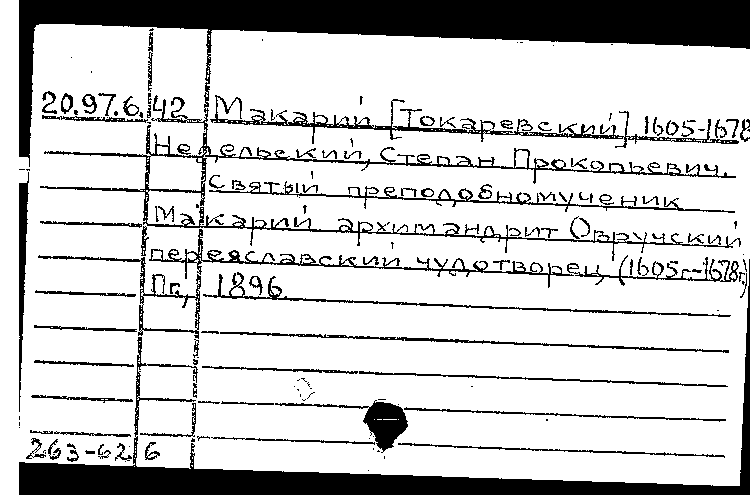 20.97.6.42 Макарий [Токаревский], 1605-1678
Недельский, Степан Прокопьевич.
Святый преподобномученик
Макарий архимандрит Овручский
переяславский чудотворец, (1605г.-1678г.)
Пг, 1896
263-62 6